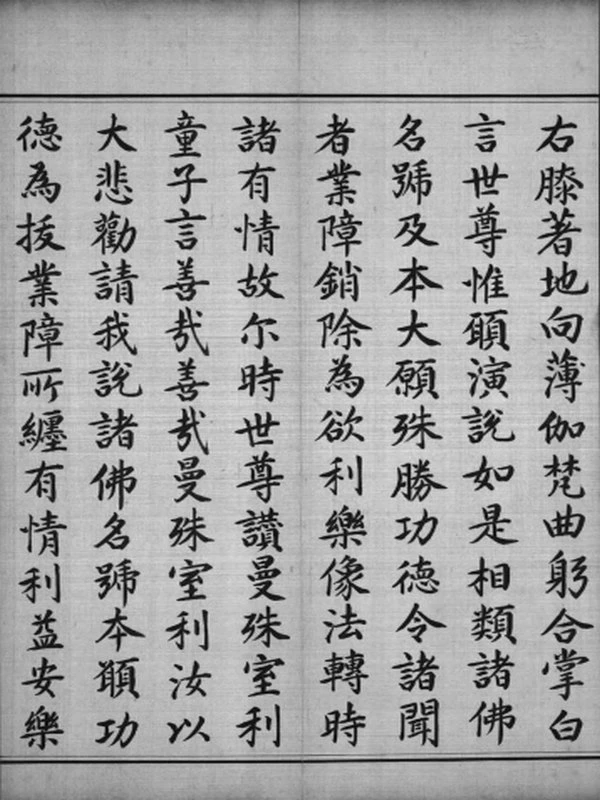 右膝著地向薄伽梵曲躬合掌白
言世尊惟願演說如是相類諸佛
名號及本大願殊勝功德令諸聞
者業障銷除為欲利樂像法轉時
諸有情故尔時世尊讚曼殊室利
童子言善哉善哉曼殊室利汝以
大悲勸請我說諸佛名號本願功
德為拔業障所纏有情利益安樂